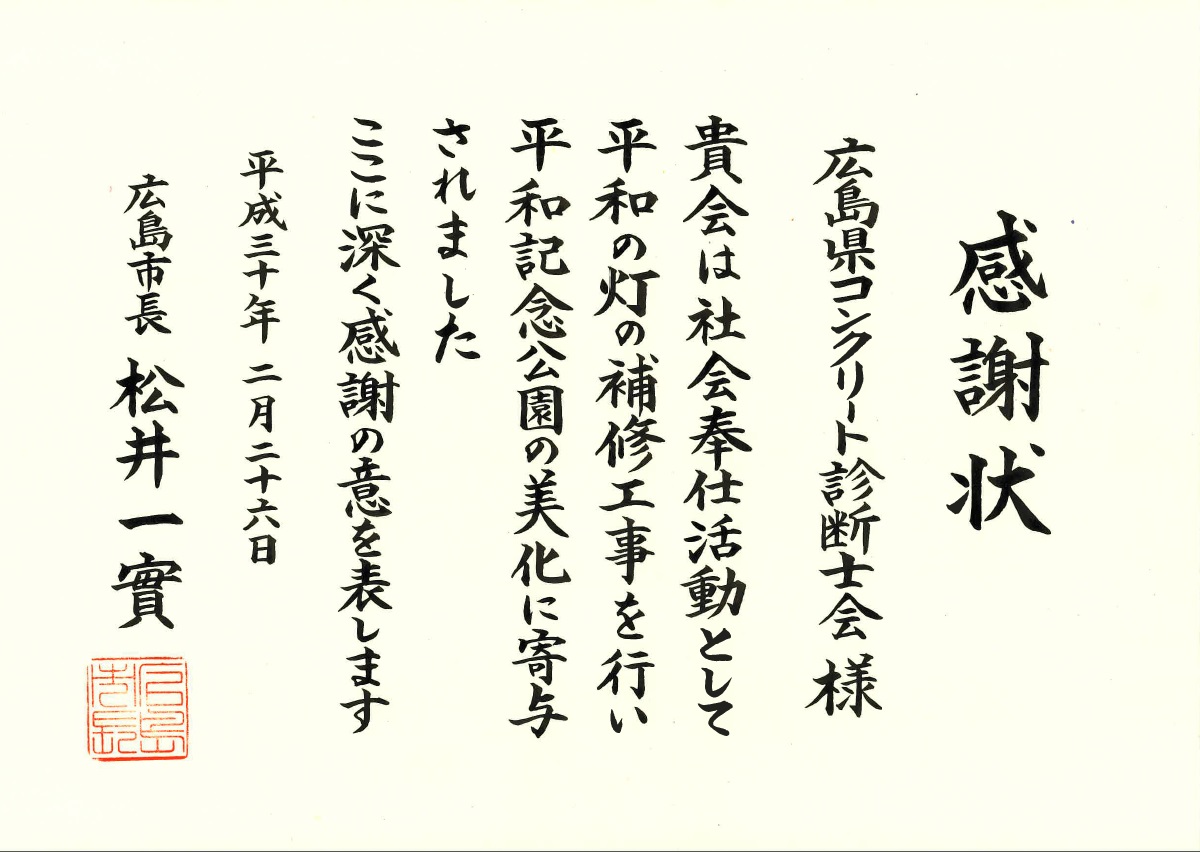 感謝状
広島県コンクリート診断士会 様
貴会は社会奉仕活動として
平和の灯の補修工事を行い
平和記念公園の美化に寄与
されました
ここに深く感謝の意を表します
平成三十年 二月二十六日
広島市長 松井一實
広島市長